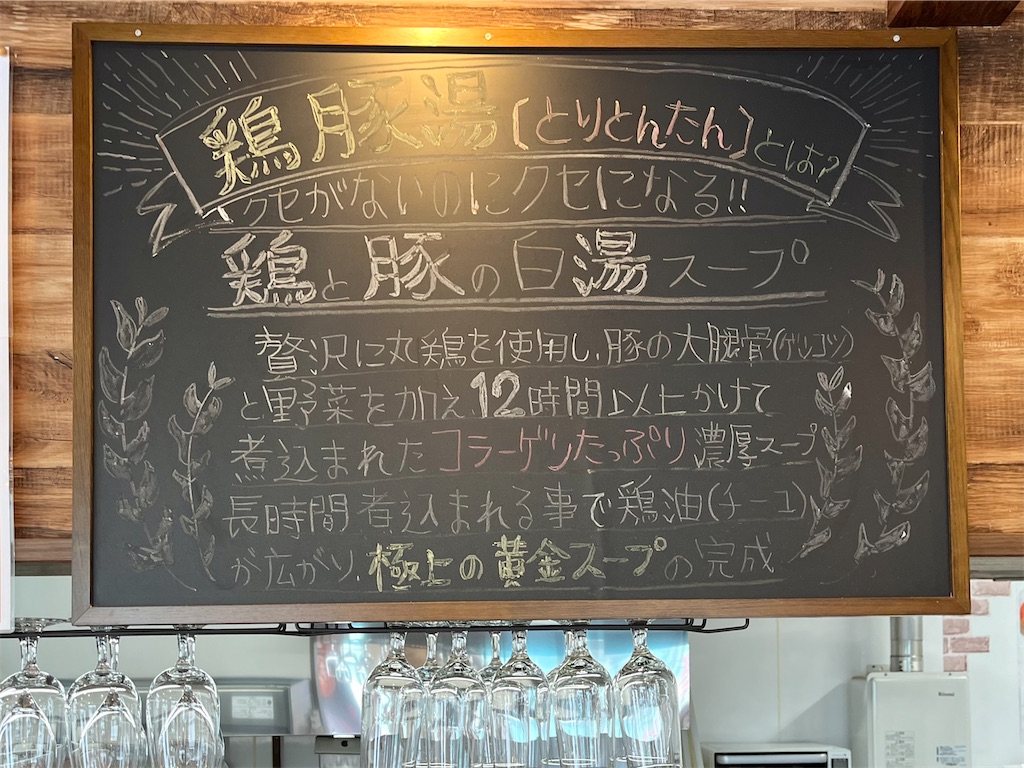 鶏豚湯〔とりとんたん〕とは?
クセがないのにクセになる!!
鶏と豚の白湯スープ
贅沢に丸鶏を使用し、豚の大腿骨(ゲンコツ)
と野菜を加え、12時間以上かけて
煮込まれたコラーゲンたっぷり濃厚スープ
長時間煮込まれる事で鶏油(チーユ)
が広がり、極上の黄金スープの完成
Rinnai